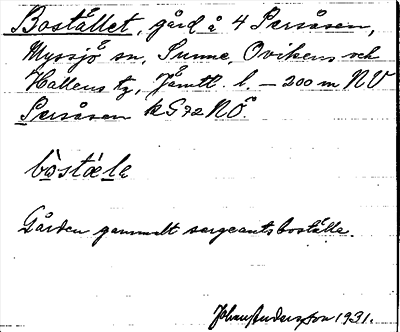 Bostället, gård å 4 Persåsen,
Myssjö sn, Sunne, Ovikens och
Hallens tg, Jämtl. l. – 200 m NV
Persåsen kG72NÖ.
bòstæ̀lə
Gården gammalt sergeantsboställe.
Johan Andersson 1931.